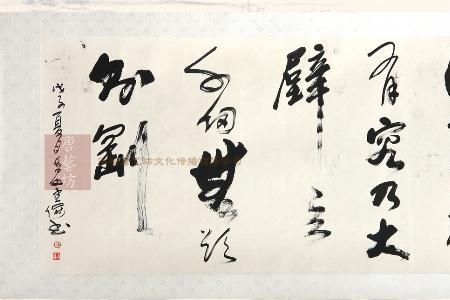 有容乃大
壁立
千仞無欲
則剛
戊子夏月
藝坊
坊文化传播